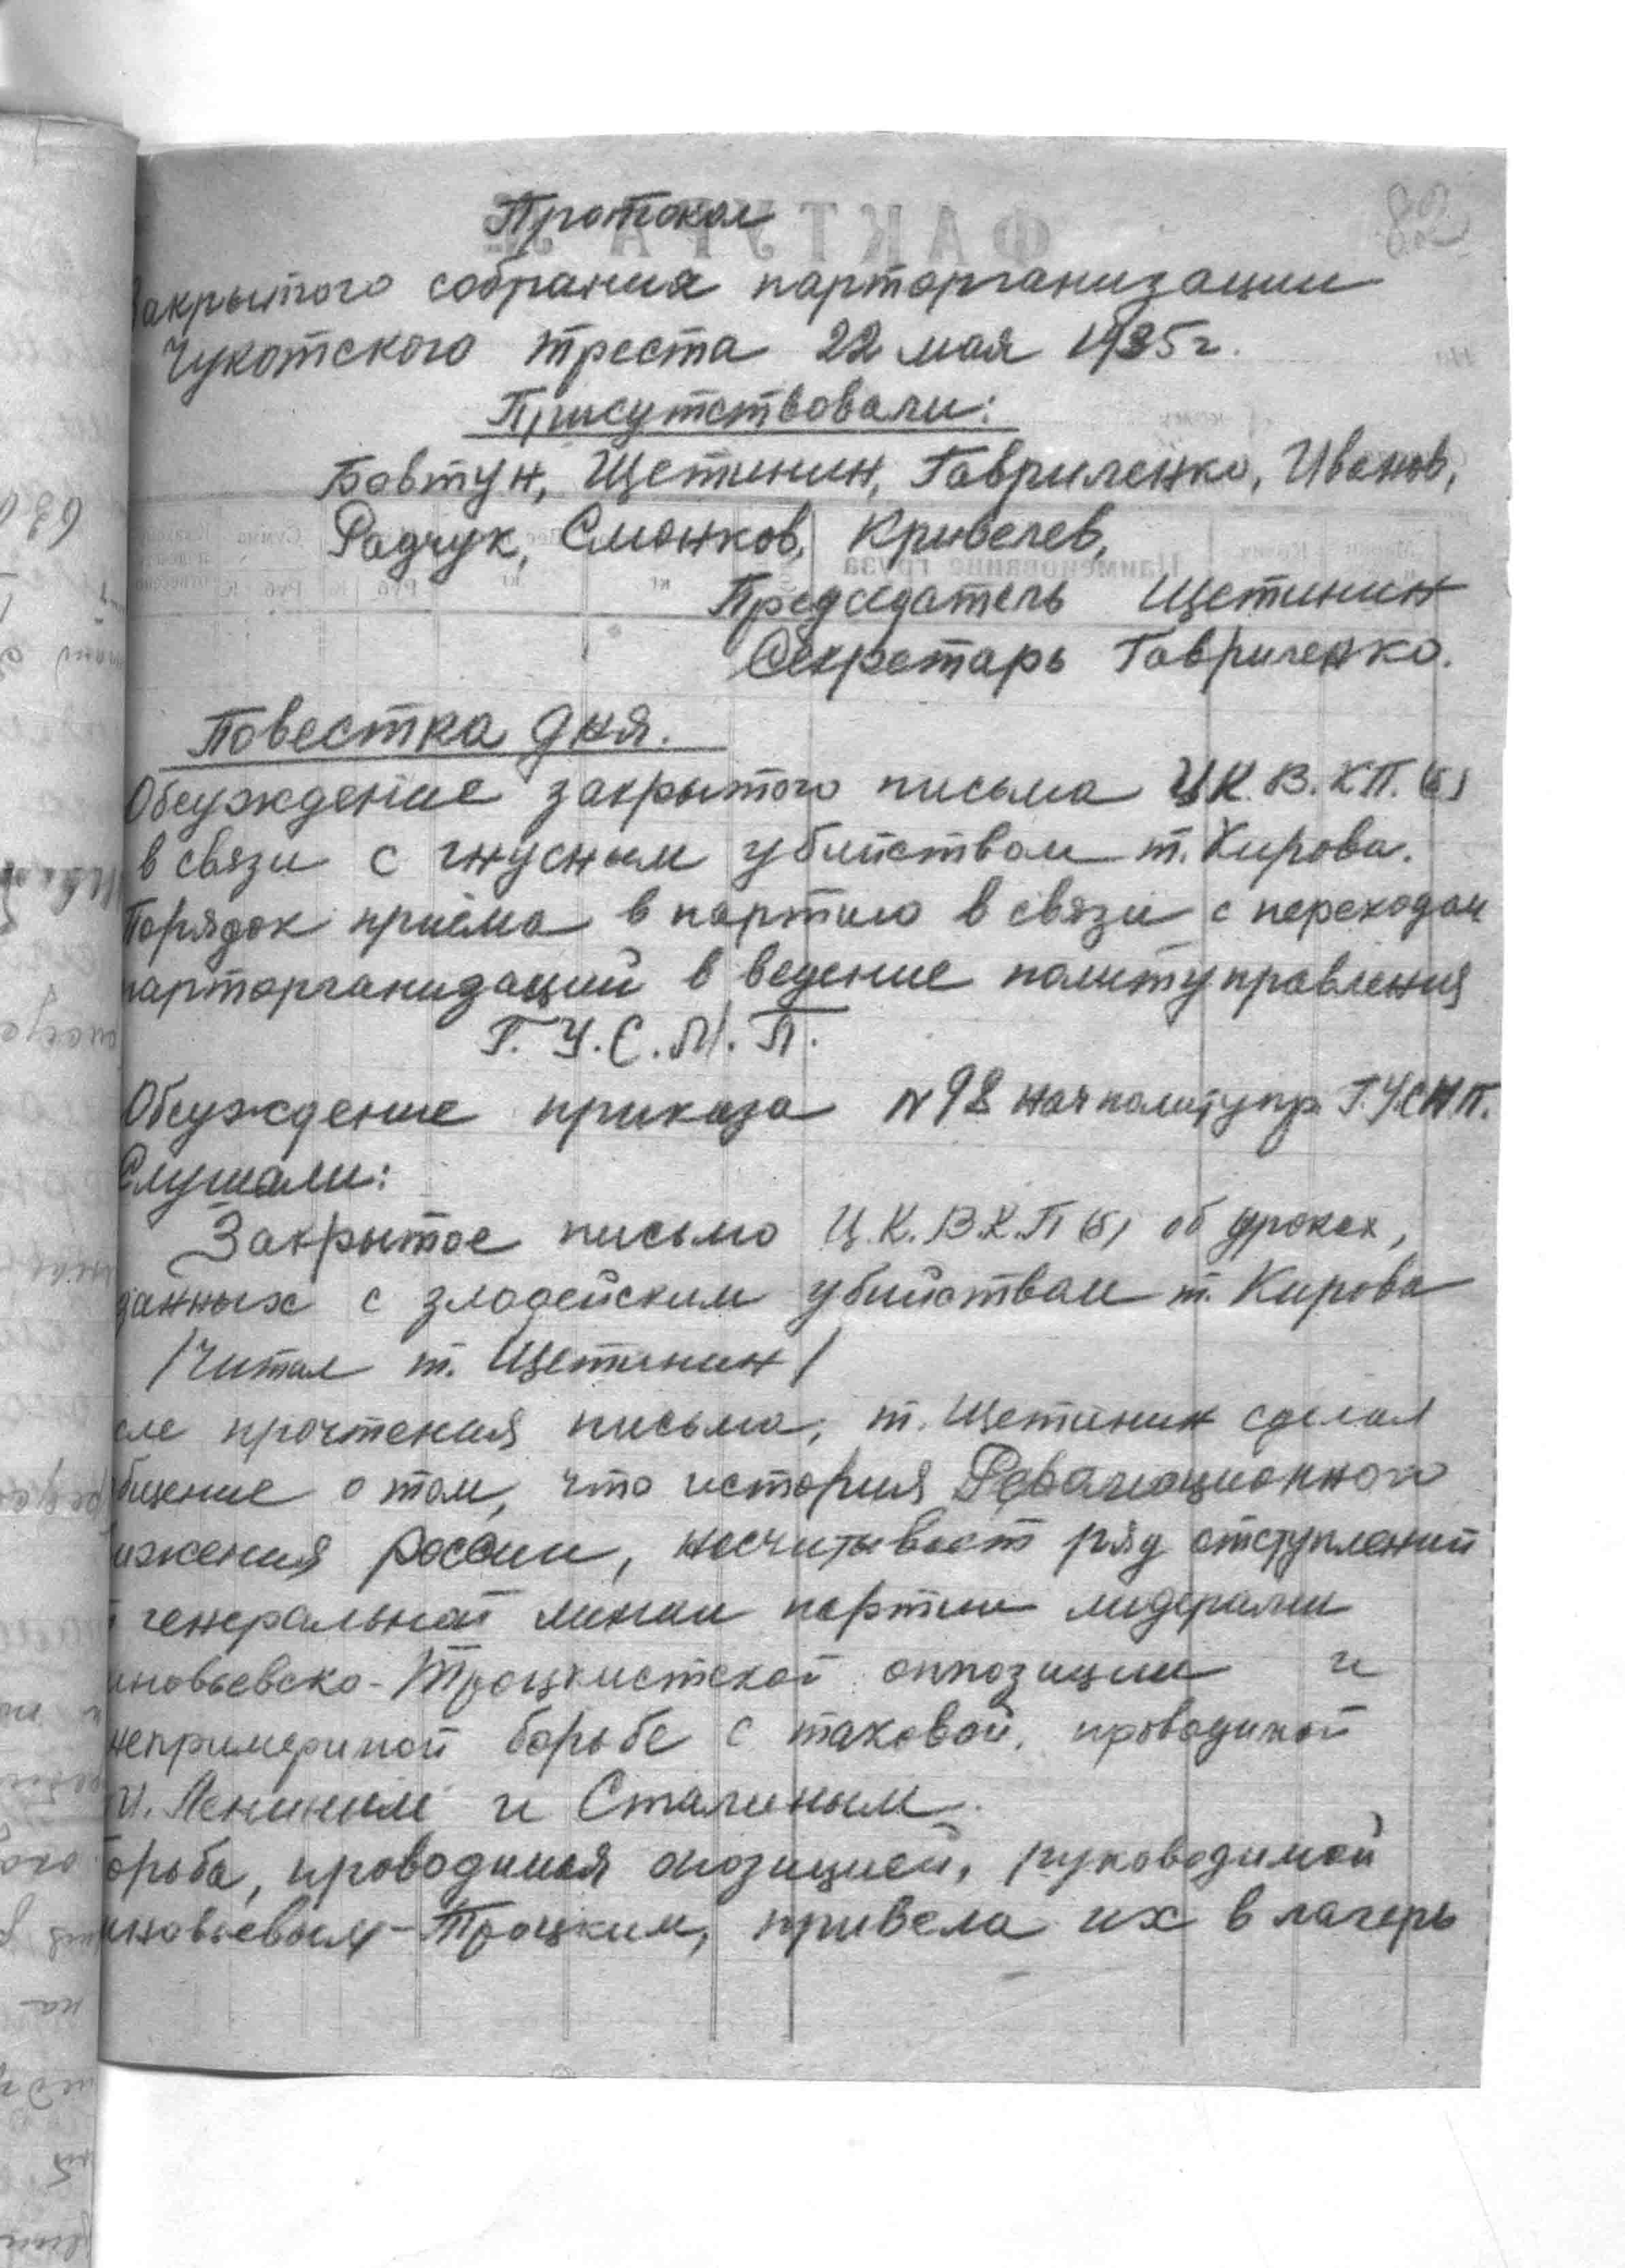 Протокол
закрытого собрания парторганизации
Чукотского треста 22 мая 1935г.
Присутствовали:
Бовтун, Щетинин, Гавриленко, Иванов,
Радчук, Смонков, Кривелев,
Председатель Щетинин
Секретарь Гавриленко.
Повестка дня.
Обсуждение закрытого письма Ц.К.В.КП.(б)
в связи с гнусным убийством т. Кирова.
Порядок приёма в партию в связи с переходом
парторганизаций в ведение политуправления
Г.У.С.М.П.
Обсуждение приказа N98 начполитупр. Г.УСМП.
Слушали:
Закрытое письмо Ц.К.В.К.П(б) об уроках,
данных с злодейским убийством т. Кирова
/Читал т. Щетинин/
сле прочтения письма, т. Щетинин сделал
бщение о том, что история Революционного
ижения россии, насчитывает ряд отступлений
генеральной линии партии лидерами
иновьевско-Троцкистской оппозиции и
непримеримой борьбе с таковой, проводимой
Лениным и Сталиным.
орьба, проводимая опозицией, руководимой
иновьевым-Троцким, привела их в лагерь
ФАКТУРА №
Наименование груза